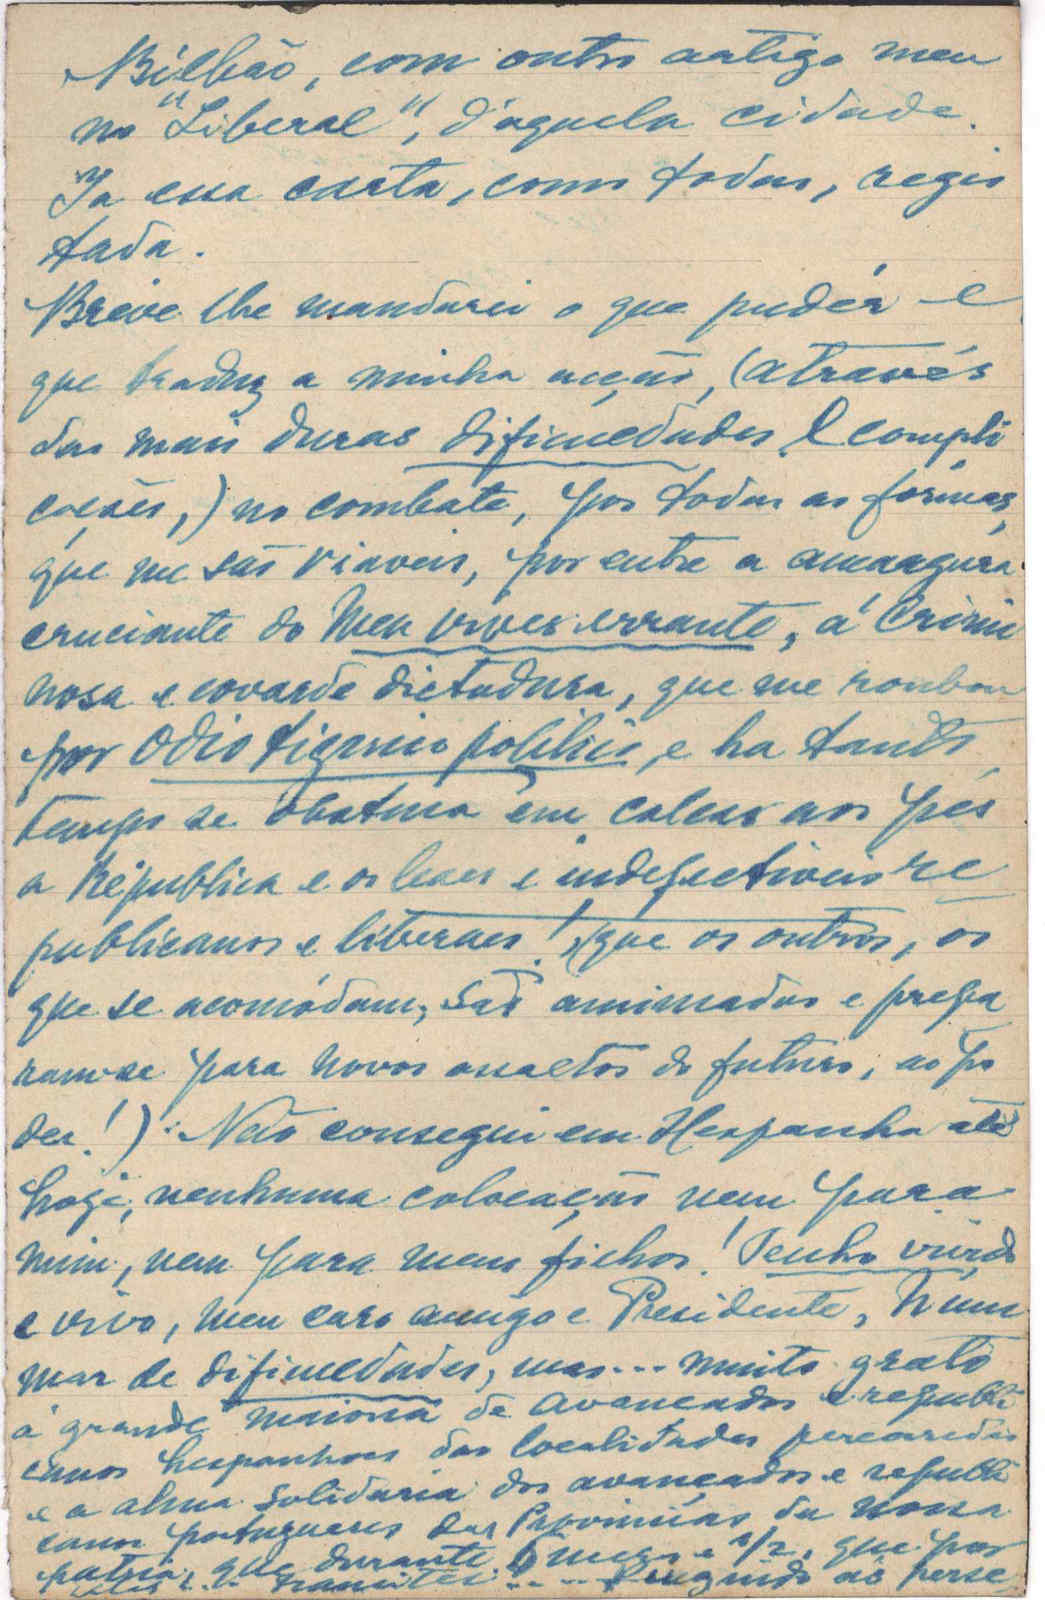 Bilbáo, com outro artigo meu
no "Liberal", d'aquela cidade.
Ia essa carta, como todas, regis
tada.
Breve lhe mandarei o que pudér e
que traduz a minha acção, (através
das mais duras dificuldades e compli
cações,) no combate, por todas as fórmas,
que me são viaveis, por entre a amargura
cruciante do meu viver errante, á crimi
nosa e covarde dictadura, que me roubou
por odio tigrino politico, e ha tanto
tempo se obstina em calcar aos pés
a Républica e os leaes e indefectiveis re
publicanos e liberaes! (que os outros, os
que se acomódam, são amimados e prepa
ram-se para novos assaltos do futuro, ao po
der!). Não consegui em Hespanha até
hoje, nenhuma colocação nem para
mim, nem para meus filhos! Tenho vivido
e vivo, meu caro amigo e Presidente, n'um
mar de dificuldades, mas... muito grato
á grande maioria de avançados e republi
canos hespanhoes das localidades percorridas
e a alma solidaria dos avançados e republi
canos portuguezes das Provincias da nossa
patria, que durante 6 mezes e 1/2, que por
transitei fugindo ás perse